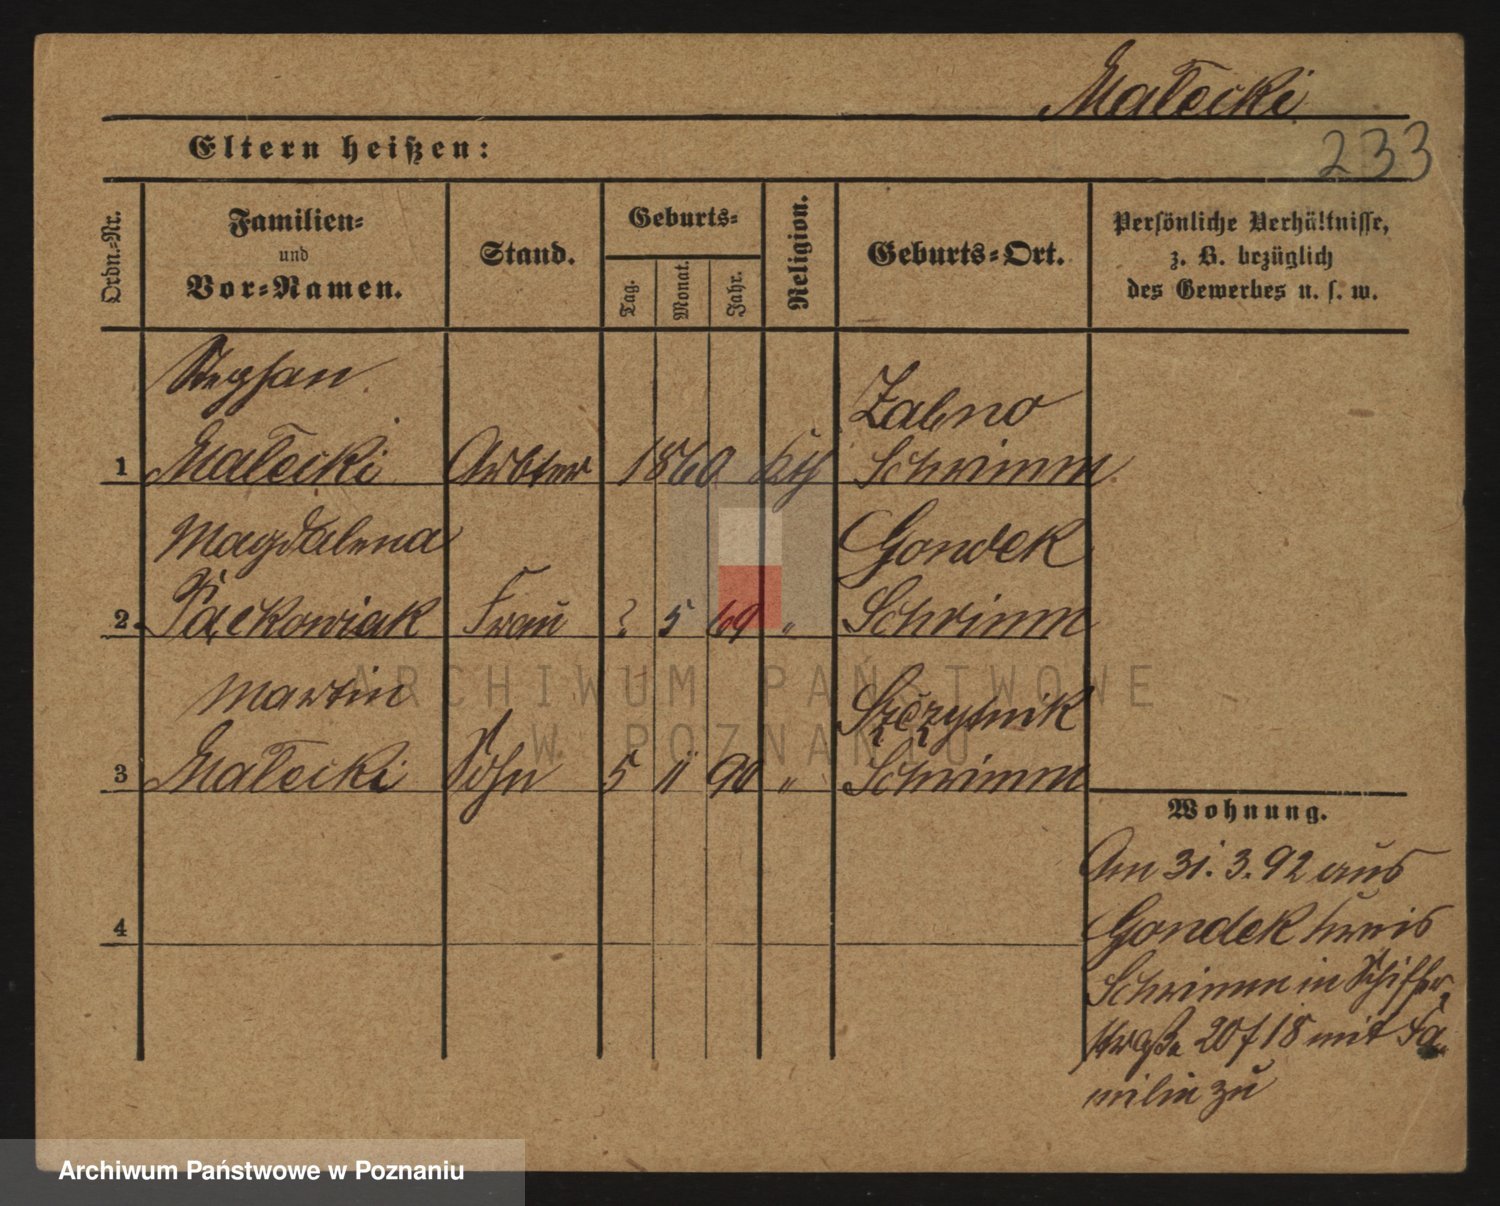 Małecki
233
Eltern heißen:
Ordn.-Nr.
Familien-
und
Vor-Namen.
Stand.
Geburts-
Tag.
Monat.
Jahr.
Religion.
Geburts-Ort.
Persönliche Verhältnisse,
z. B. bezüglich
des Gewerbes u. s. w.
Stephan
Zabno
1 Małecki Arbter 1860 Kth Schrimm
Magdalena
Gondek
2. Frau 5 69 " Schrimm
Martin
Szczytnik
3 Małecki Sohn 5 11 90 " Schrimm
4
Wohnung.
Am 31.3.92 aus
Gondek Kreis
Schrimm in Schiffer-
straße 20 f 18 mit Fa-
milie zu
ARCHIWUM PAŃSTWOWE
W POZNANIU
Archiwum Państwowe w Poznaniu